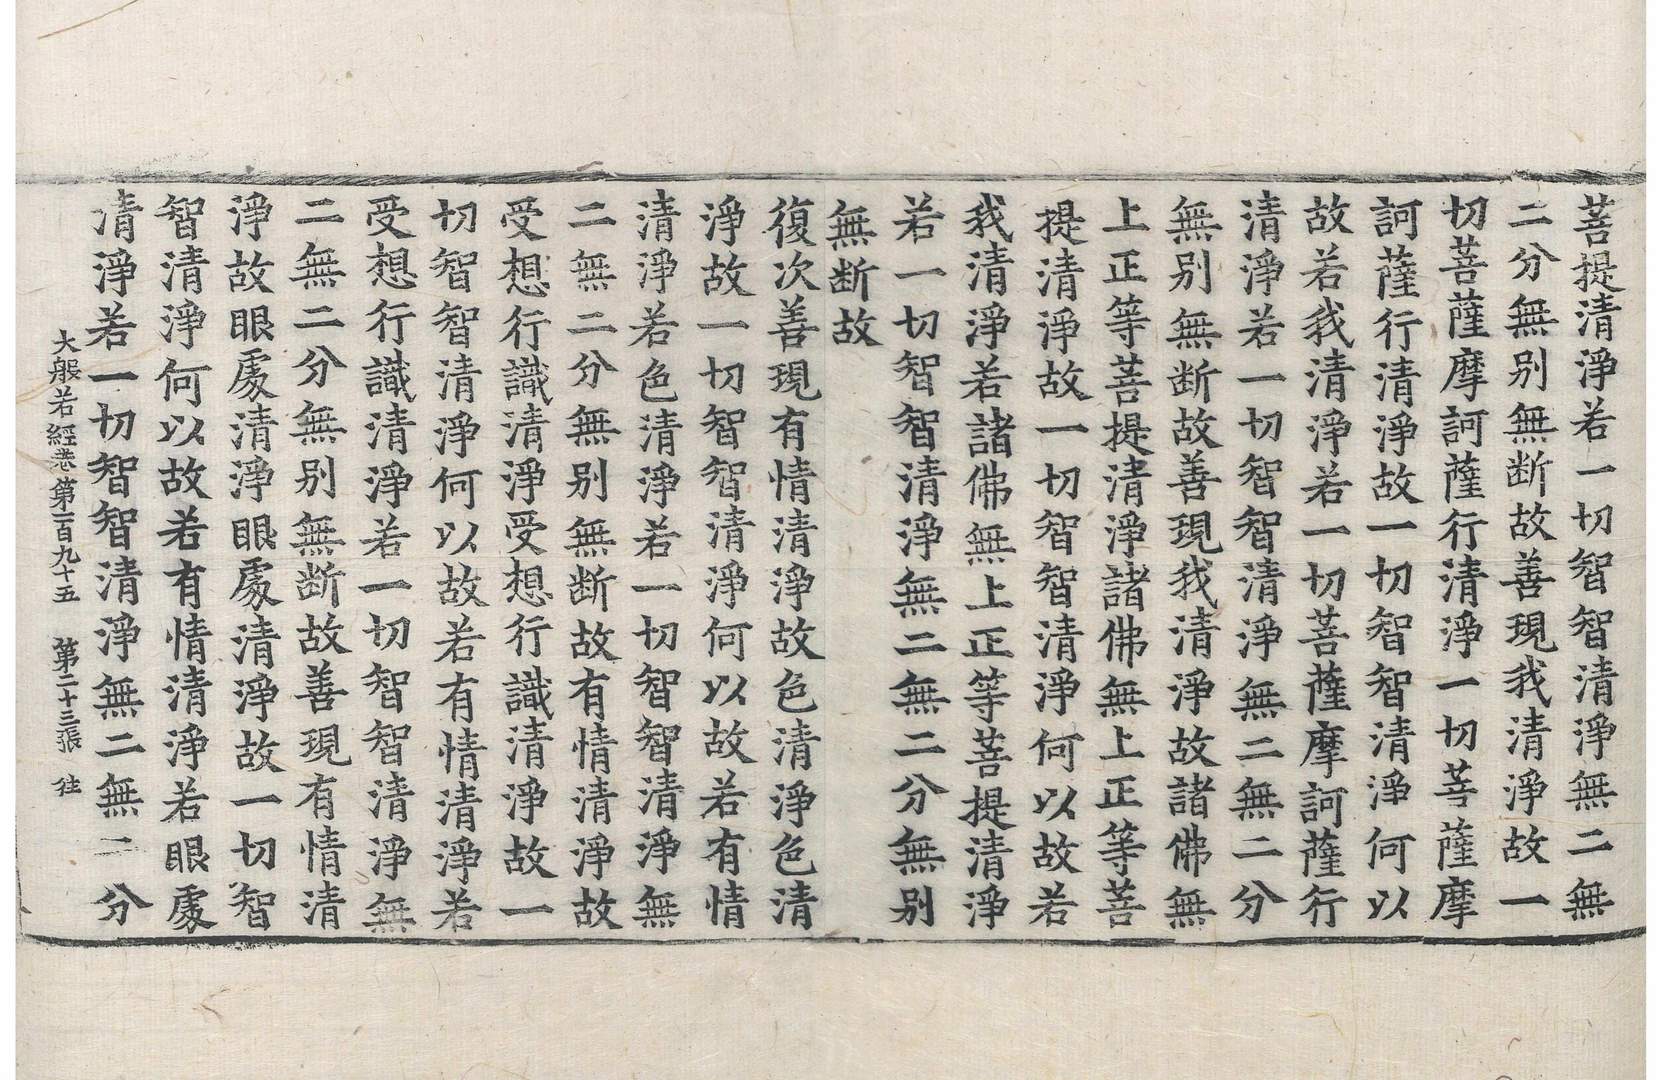 菩提清淨若一切智智清淨無二無
二分無別無断故善現我清淨故一
切菩薩摩訶薩行清淨一切菩薩摩
訶薩行清淨故一切智智清淨何以
故若我清淨若一切菩薩摩訶薩行
清淨若一切智智清淨無二無二分
無別無断故善現我清淨故諸佛無
上正等菩提清淨諸佛無上正等菩
提清淨故一切智智清淨何以故若
我清淨若諸佛無上正等菩提清淨
若一切智智清淨無二無二分無別
無断故
復次善現有情清淨故色清淨色清
淨故一切智智清淨何以故若有情
清淨若色清淨若一切智智清淨無
二無二分無別無断故有情清淨故
受想行識清淨受想行識清淨故一
切智智清淨何以故若有情清淨若
受想行識清淨若一切智智清淨無
二無二分無別無断故善現有情清
淨故眼處清淨眼處清淨故一切智
智清淨何以故若有情清淨若眼處
清淨若一切智智清淨無二無二分
大般若經卷第一百九十五 第二十三張 往